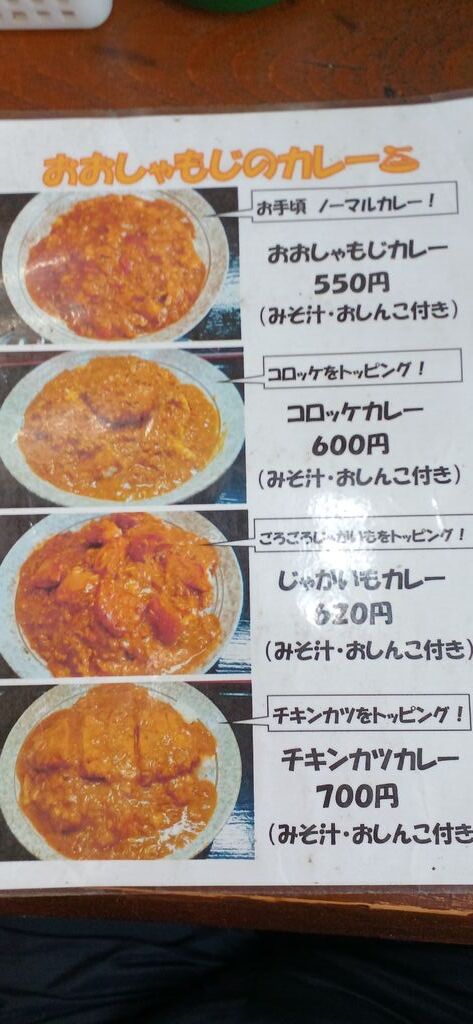 おおしゃもじのカレー
お手頃 ノーマルカレー!
おおしゃもじカレー
550円
(みそ汁・おしんこ付き)
コロッケをトッピング!
コロッケカレー
600円
(みそ汁・おしんこ付き)
ごろごろじゃがいもをトッピング!
じゃがいもカレー
620円
(みそ汁・おしんこ付き)
チキンカツをトッピング!
チキンカツカレー
700円
(みそ汁・おしんこ付き